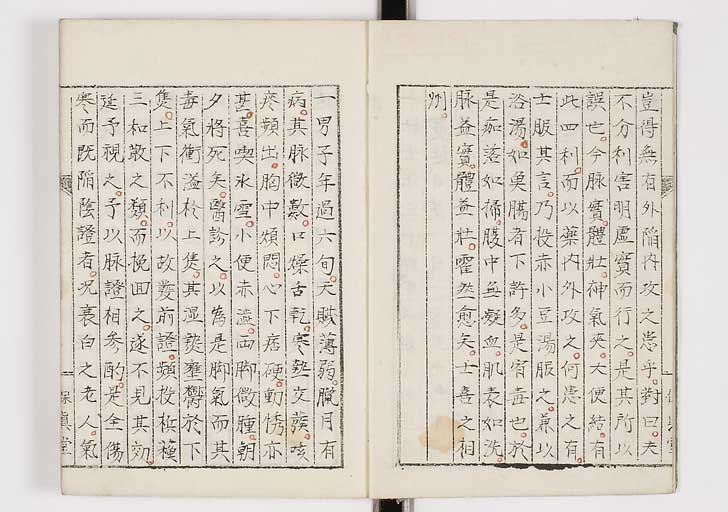 豈得無有外陷内攻之患乎對曰夫
不分利害明虛實而行之是其所以
誤也今脉實體壯神氣爽大便結有
此四利而以藥内外攻之何患之有
士服其言乃投赤小豆湯服之兼以
浴湯如臭膓者下許多是宿毒也於
是痂落如掃腹中無癥血肌表如洗
脉益實體益壯霍然愈矣士喜之相
州
一男子年過六旬天賦薄弱臘月有
病其脉微數口燥舌乾寒熱交發咳
痰頻出胸中煩悶心下痞硬動悸亦
甚喜喫氷雪小便赤澁両脚微腫朝
夕將死矣醫診之以為是脚氣而其
毒氣衝溢於上焦其濕熱壅欝於下
焦上下不利以故發前證頻投檳蘓
三和散之類而挽回之遂不見其効
延予視之予以脉證相參酌是全傷
寒而既陷陰證者况衰白之老人氣
保眞堂